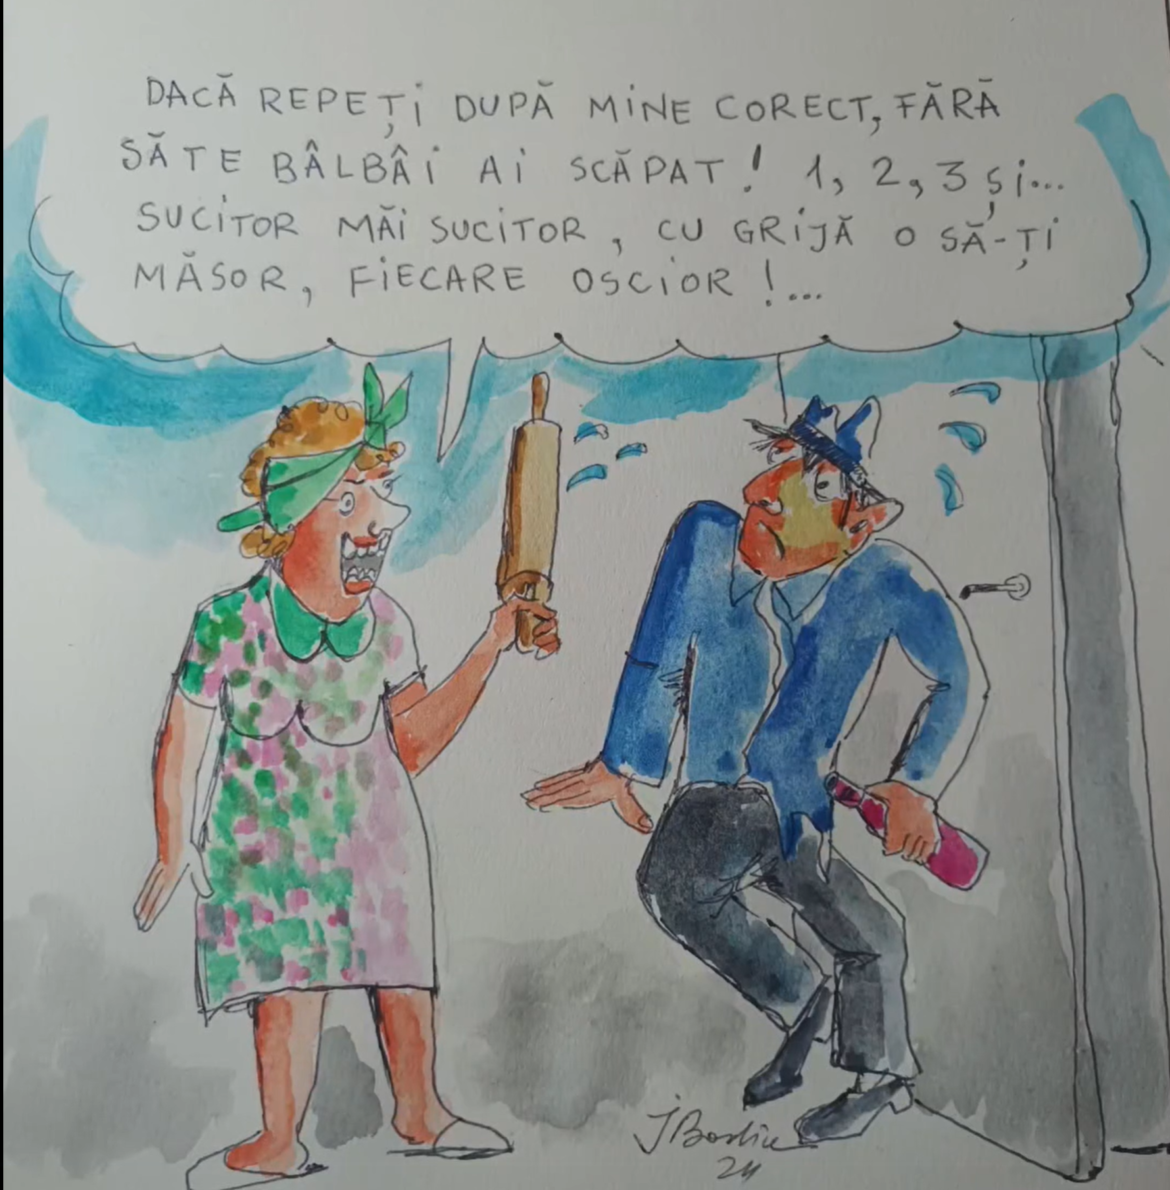 DACĂ REPEȚI DUPĂ MINE CORECT, FĂRĂ
SĂ TE BÂLBÂI AI SCĂPAT! 1, 2, 3 ȘI...
SUCITOR MĂI SUCITOR, CU GRIJĂ O SĂ-ȚI
MĂSOR, FIECARE OSCIOR!...
24